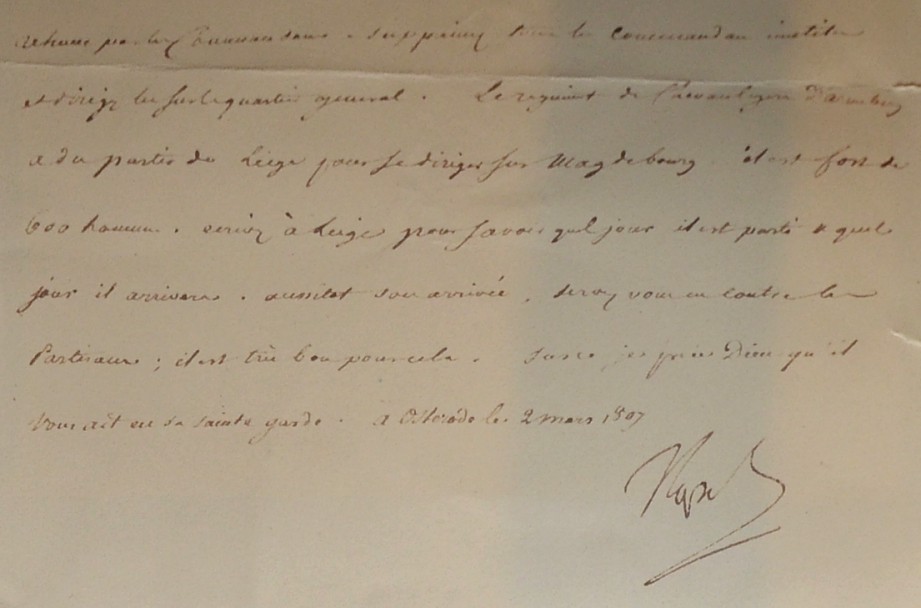 retenus par les Commandans. supprimez tous les commandans inutiles
et dirigez les sur le quartier general. Le regiment de Chevaulegers D'aremberg
a du partir de Liege pour se diriger sur Magdebourg. il est fort de
600 hommes. ecrivez à Liege pour savoir quel jour il est parti & quel
jour il arrivera. aussitot son arrivée, servez vous en contre les
Partisans; il est très bon pour cela. Sur ce je prie Dieu qu'il
vous ait en sa sainte garde. a Osterode le 2 mars 1807
Nap